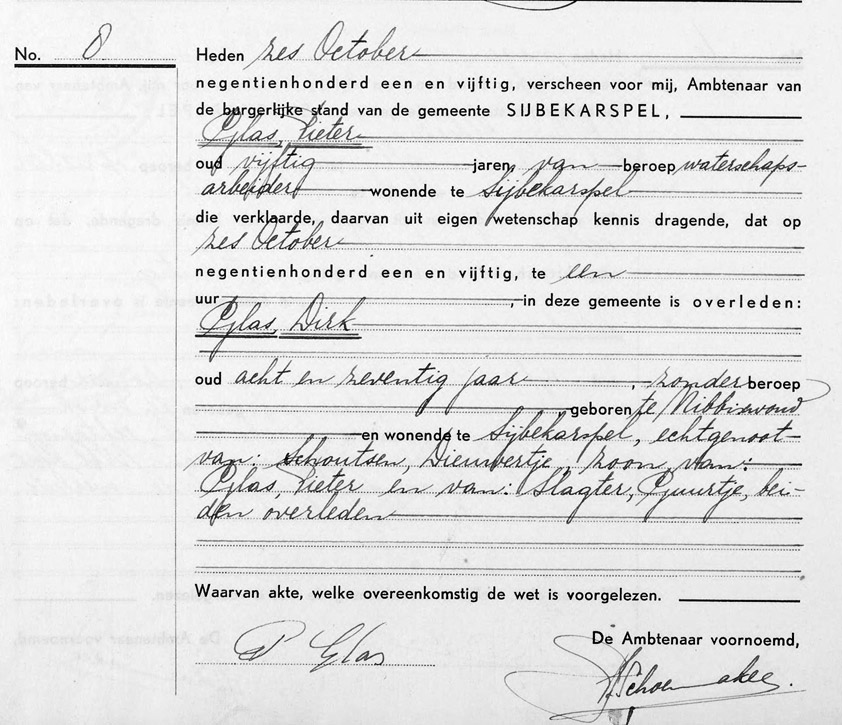 No. 8
Heden zes October
negentienhonderd een en vijftig, verscheen voor mij, Ambtenaar van
de burgerlijke stand van de gemeente SIJBEKARSPEL,
Glas, Pieter
oud vijftig jaren, van beroep waterschaps-
arbeider, wonende te Sijbekarspel
die verklaarde, daarvan uit eigen wetenschap kennis dragende, dat op
zes October
negentienhonderd een en vijftig, te een
uur , in deze gemeente is overleden:
Glas, Dirk
oud acht en zeventig jaar , zonder beroep
geboren te Nibbixwoud
en wonende te Sijbekarspel, echtgenoot
van: Schoutsen, Dieuwertje, zoon van:
Glas, Pieter en van: Slagter, Guurtje, bei-
den overleden
Waarvan akte, welke overeenkomstig de wet is voorgelezen.
De Ambtenaar voornoemd,
P Glas